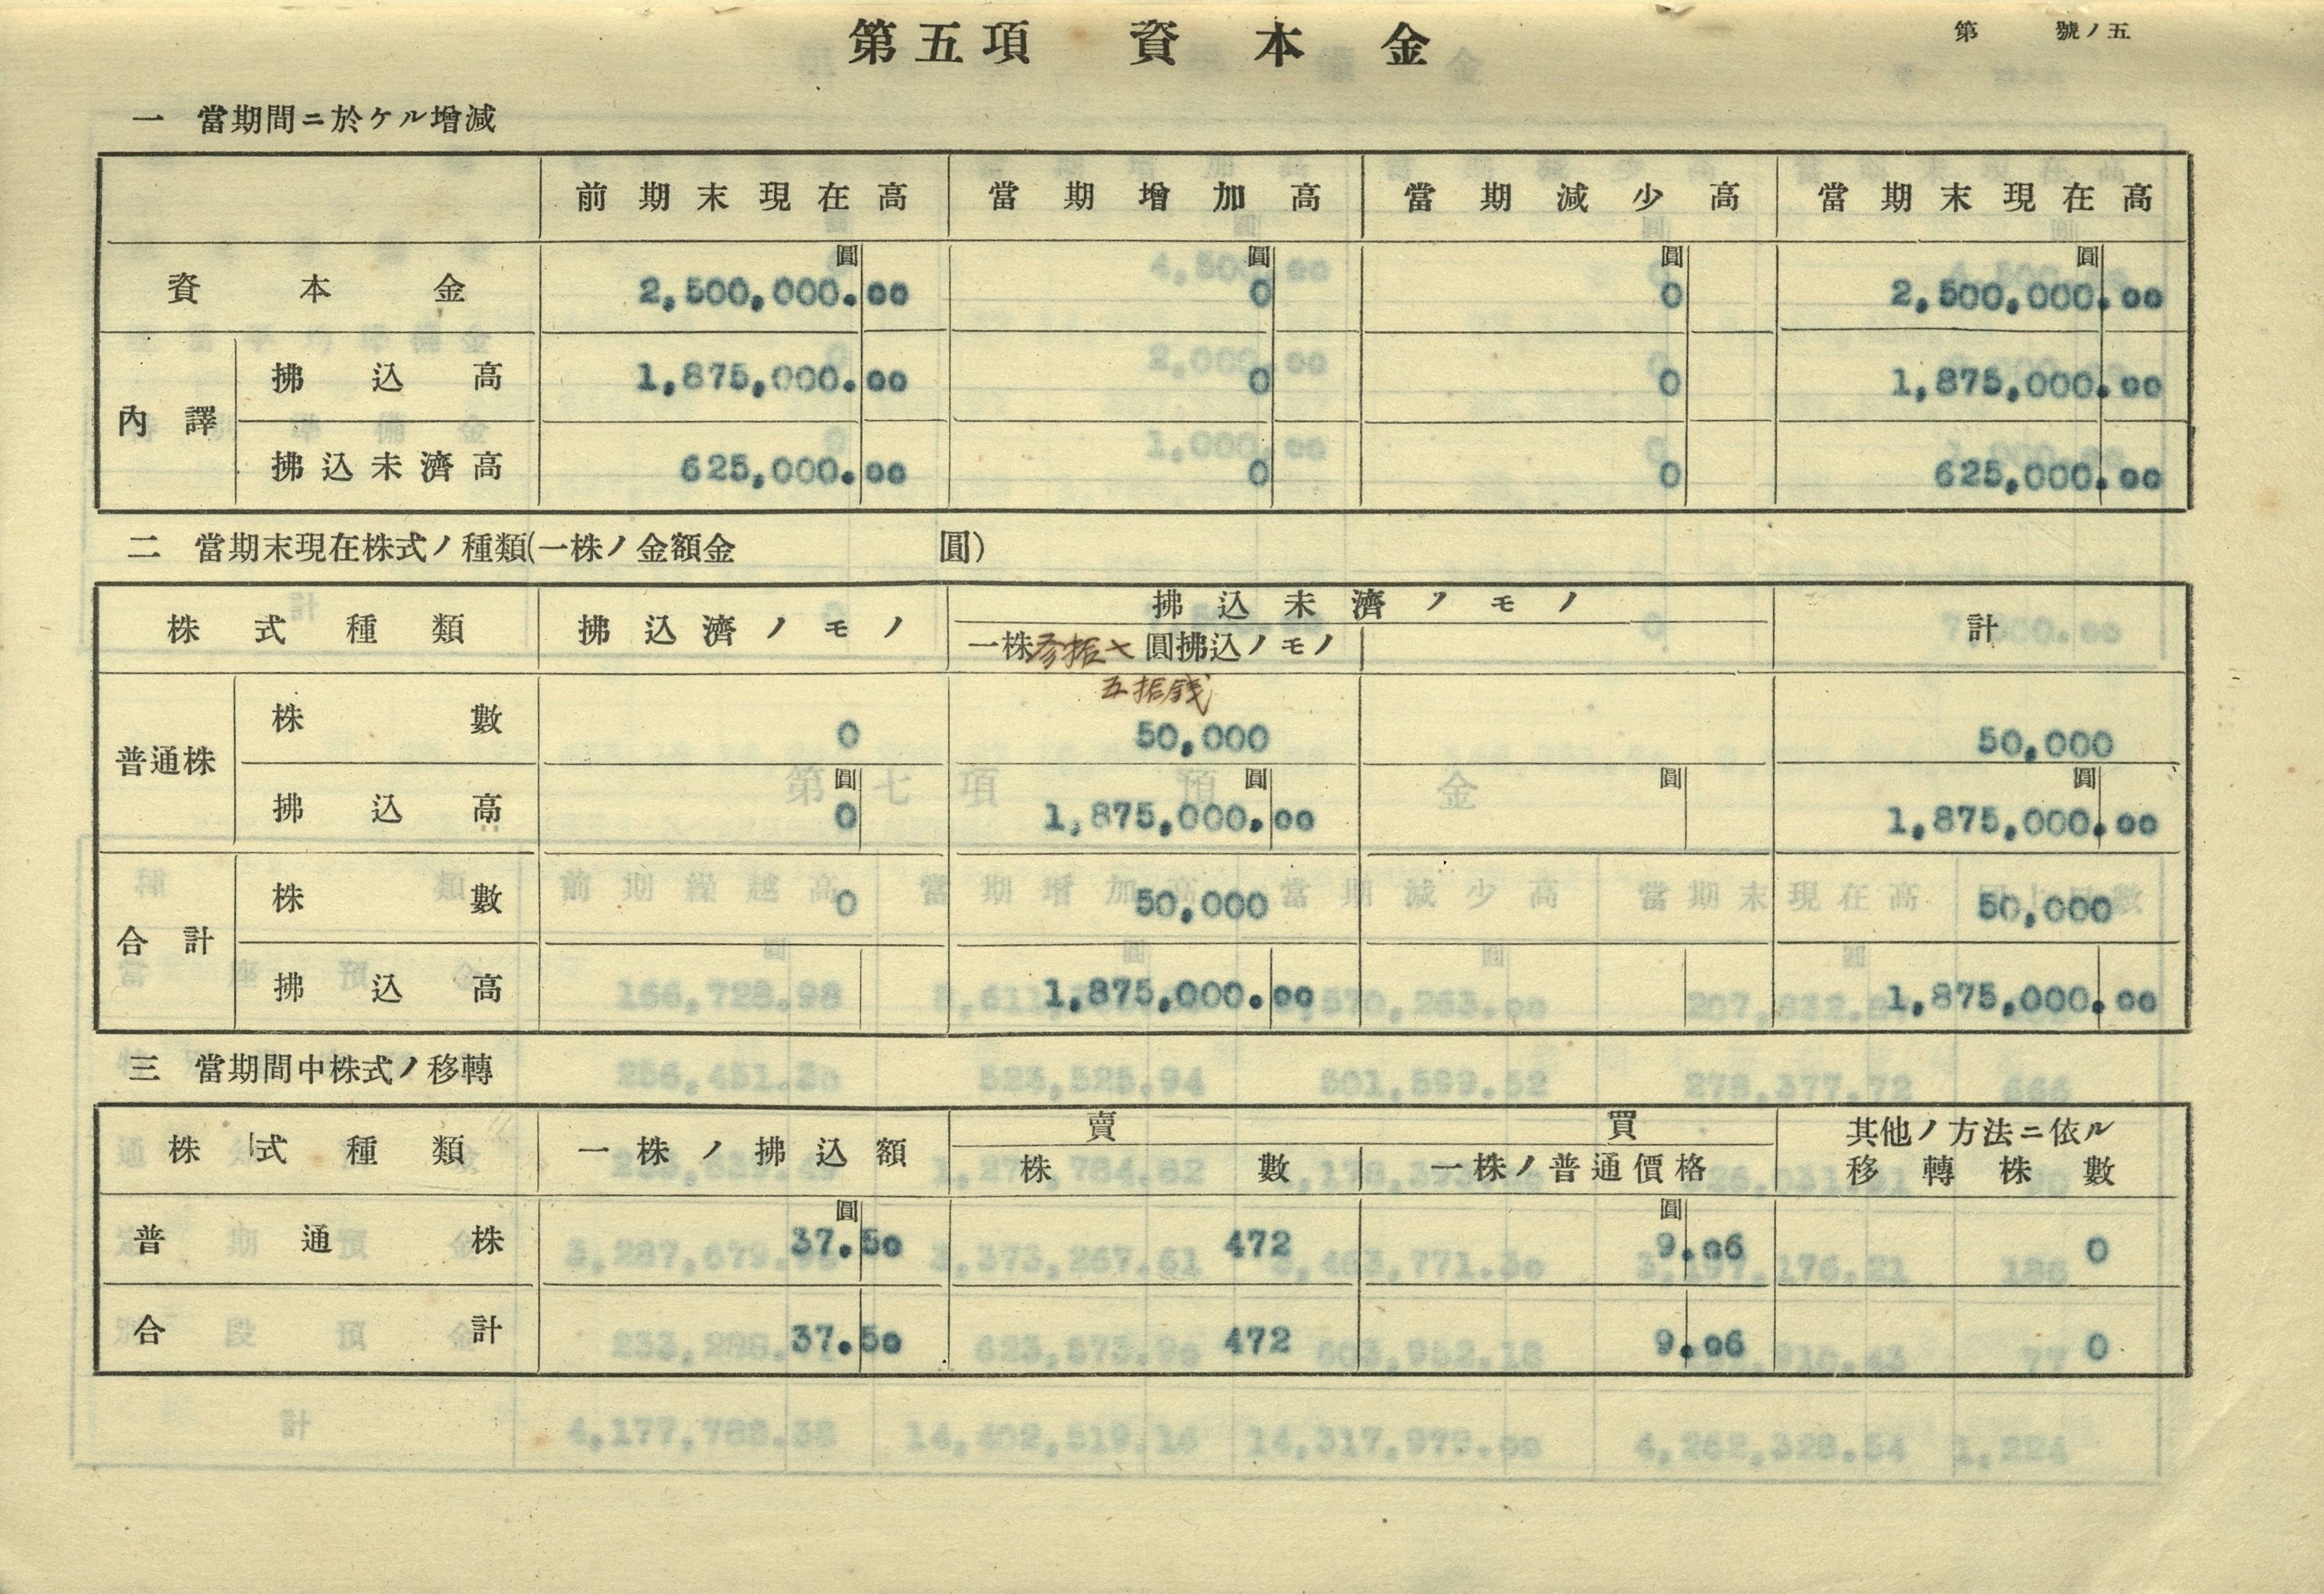 第五項 資本金
第 號ノ五
一 當期間ニ於ケル增減
前期末現在高 當期增加高 當期減少高 當期末現在高
圓 圓 圓 圓
資本金 2,500,000.00 0 0 2,500,000.00
內譯
拂込高 1,875,000.00 0 0 1,875,000.00
拂込未濟高 625,000.00 0 0 625,000.00
二 當期末現在株式ノ種類(一株ノ金額金 圓)
株式種類 拂込濟ノモノ 拂込未濟ノモノ 計
一株參拾七圓拂込ノモノ
五拾錢
普通株
株數 0 50,000 50,000
圓 圓 圓 圓
拂込高 0 1,875,000.00 1,875,000.00
合計
株數 0 50,000 50,000
拂込高 1,875,000.00 1,875,000.00
三 當期間中株式ノ移轉
株式種類 一株ノ拂込額 賣買 其他ノ方法ニ依ル
株數 一株ノ普通價格 移轉株數
圓 圓
普通株 37.50 472 9.06 0
合計 37.50 472 9.06 0